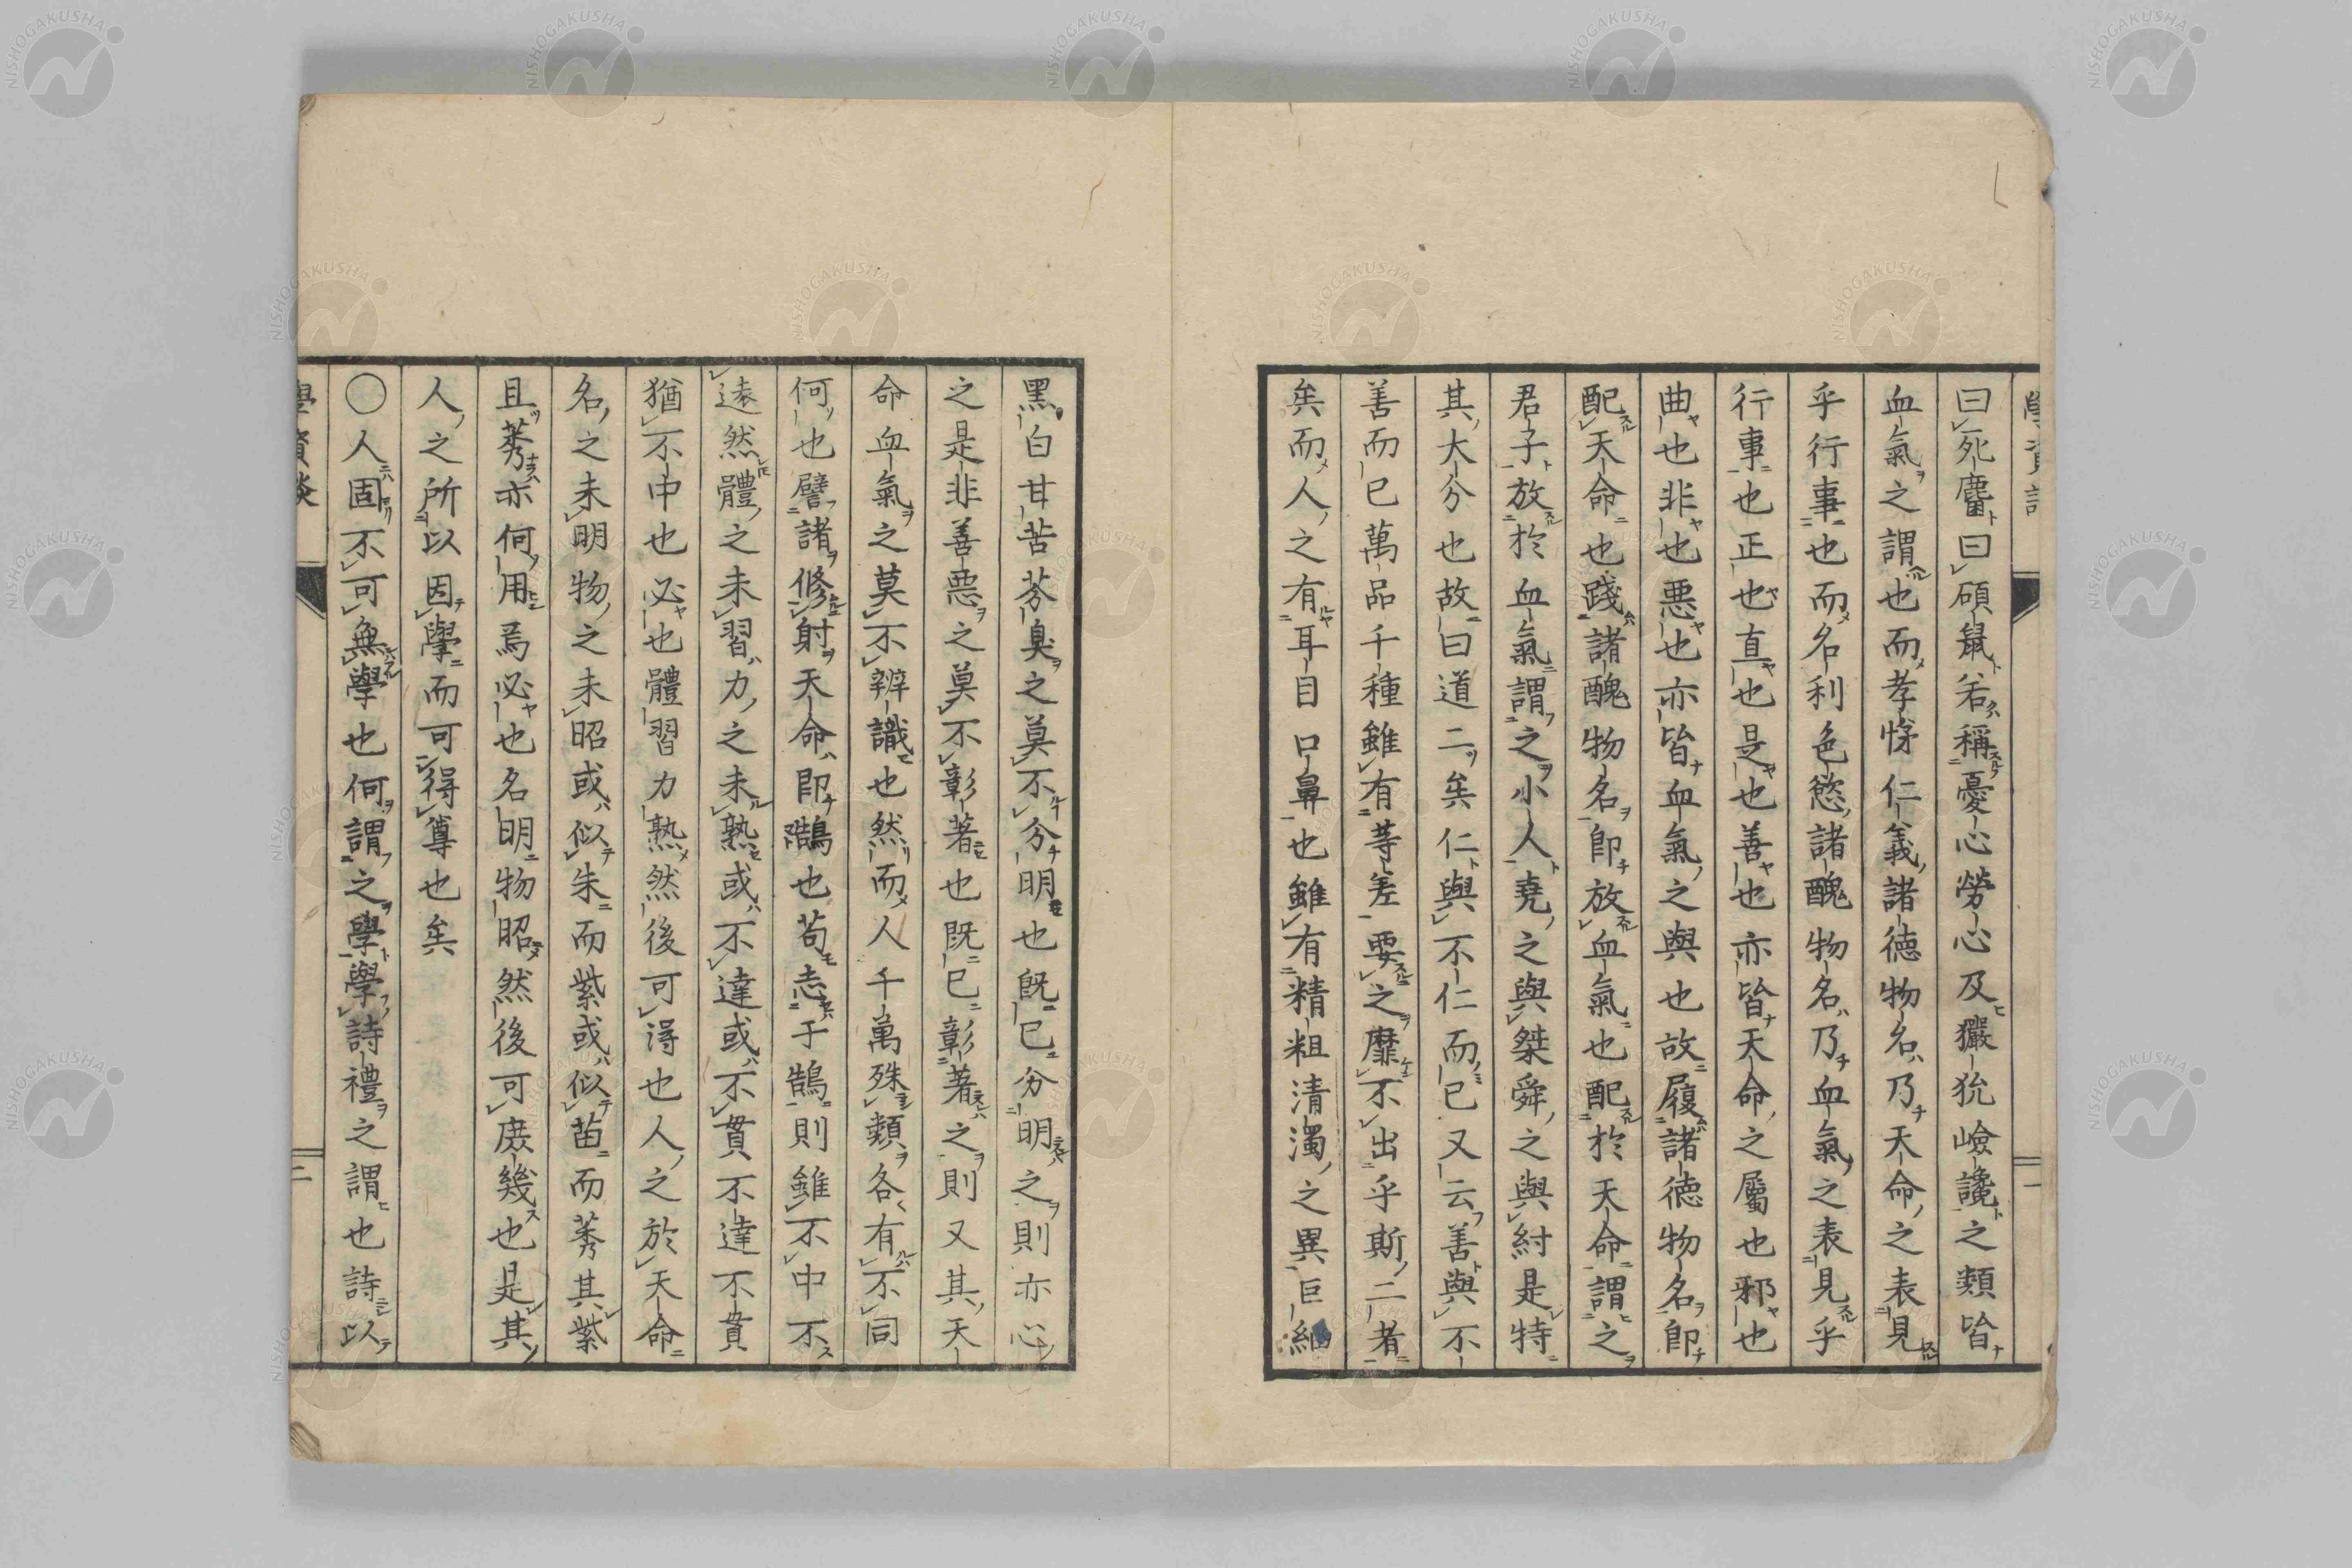 曰死麕曰碩鼠若稱憂心勞心及玁狁嶮讒之類皆
血氣之謂也而孝悌仁義諸德物名乃天命之表見
乎行事也而名利色慾諸醜物名乃血氣之表見乎
行事也正也直也是也善也亦皆天命之屬也邪也
曲也非也悪也亦皆血氣之與也故履諸德物名即
配天命也踐諸醜物名即放血氣也配於天命謂之
君子放於血氣謂之小人堯之與桀舜之與紂是特
其大分也故曰道二矣仁與不仁而已又云善與不
善而已萬品千種雖有等差要之靡不出乎斯二者
矣而人之有耳目口鼻也雖有精粗清濁之異巨細
黑白甘苦芬臭之莫不分明也既已分明之則亦心
之是非善惡之莫不彰著也既已彰著之則又其天
命血氣之莫不辨識也然而人千萬殊類各有不同
何也譬諸修射天命即鵠也苟志于鵠則雖不中不
遠然體之未習力之未熟或不達或不貫不達不貫
猶不中也必也體習力熟然後可得也人之於天命
名之未明物之未昭或似朱而紫或似苗而莠其紫
且莠亦何用焉必也名明物昭然後可庶幾也是其
人之所以因學而可得尊也矣
○人固不可無學也何謂之學學詩禮之謂也詩以
學資談
二